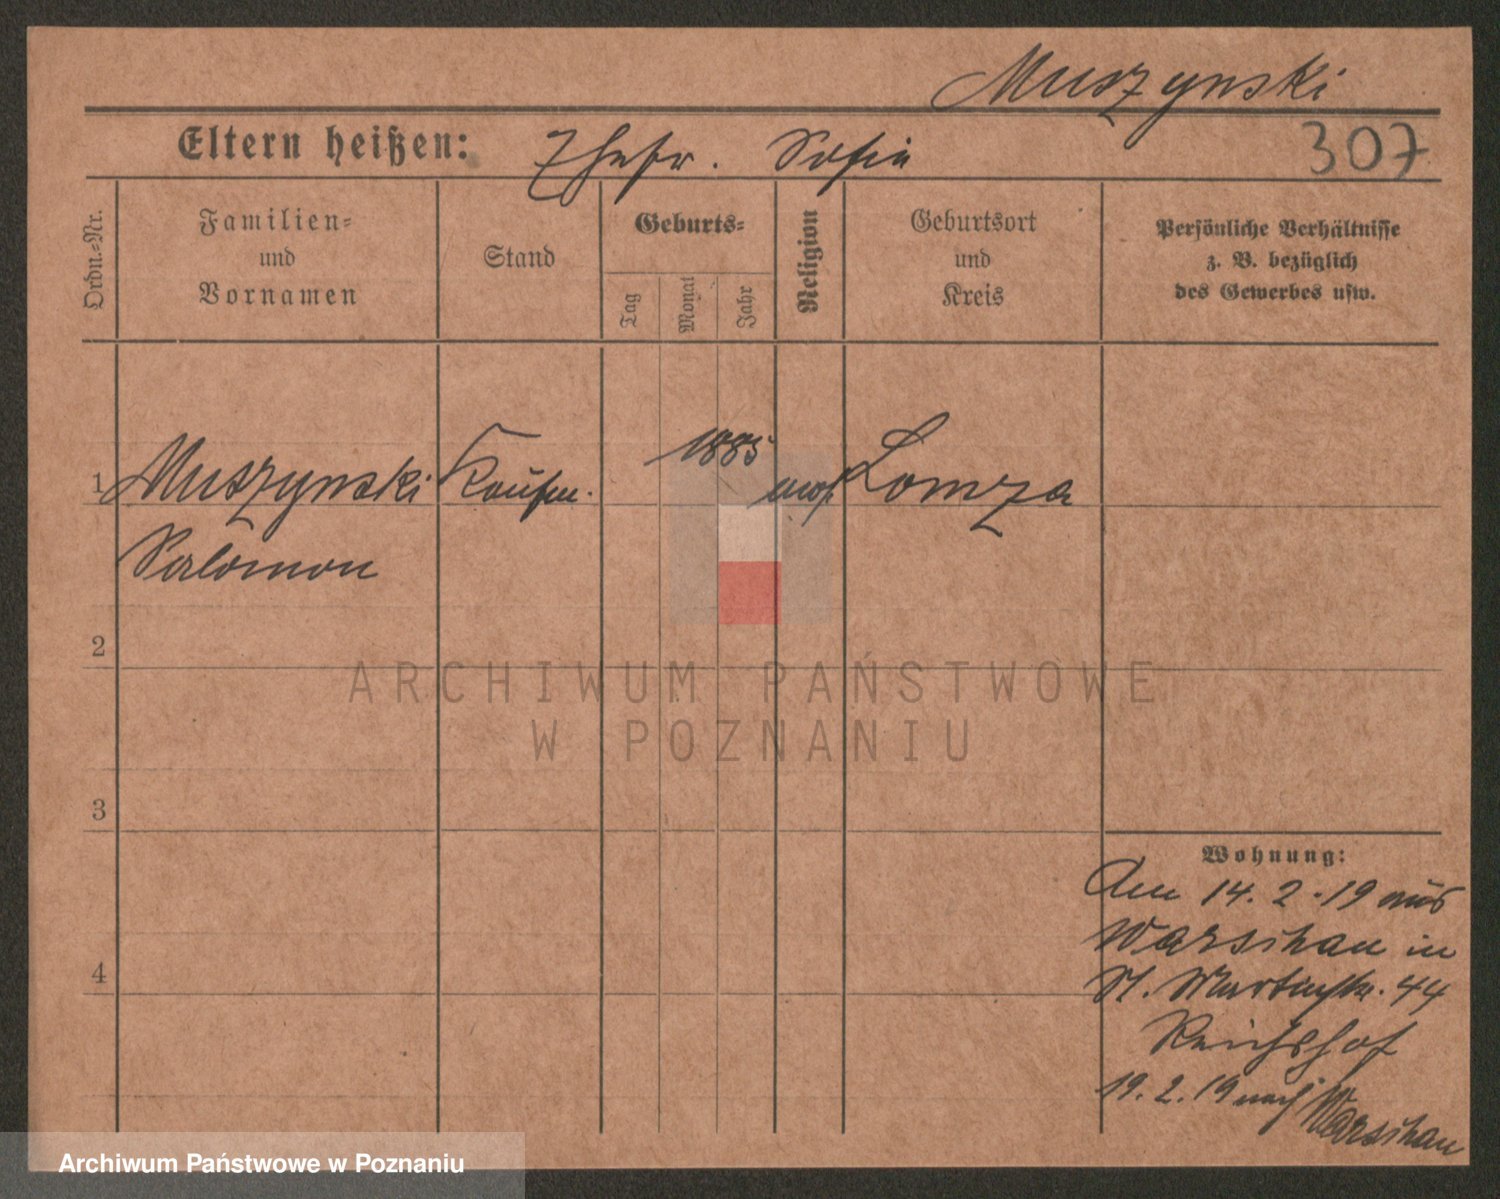 Muszynski
307
Eltern heißen: Sofia
Ordn.-Nr.
Familien-
und
Vornamen
Stand
Geburts-
Tag
Monat
Jahr
Religion
Geburtsort
und
Kreis
Persönliche Verhältnisse
z. B. bezüglich
des Gewerbes usw.
1 Muszynski Kaufm. 1885 mos. Lomza
Salomon
2
3
4
Wohnung:
Am 14. 2. 19 aus
Warschau in
St. Martinstr. 44
Reichshof
19. 2. 19 nach Warschau
ARCHIWUM PAŃSTWOWE
W POZNANIU
Archiwum Państwowe w Poznaniu